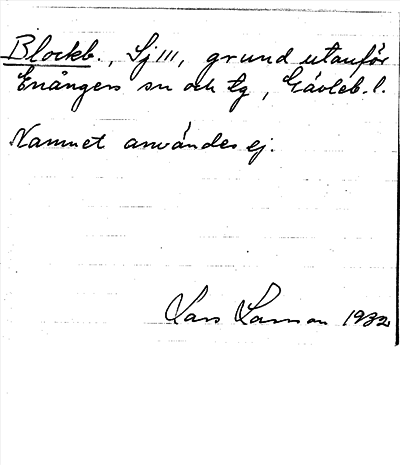 Blockb., Sj 111, grund utanför
Enångers sn och tg, Gävleb. l.
Namnet användes ej.
Lars Larsson 1932